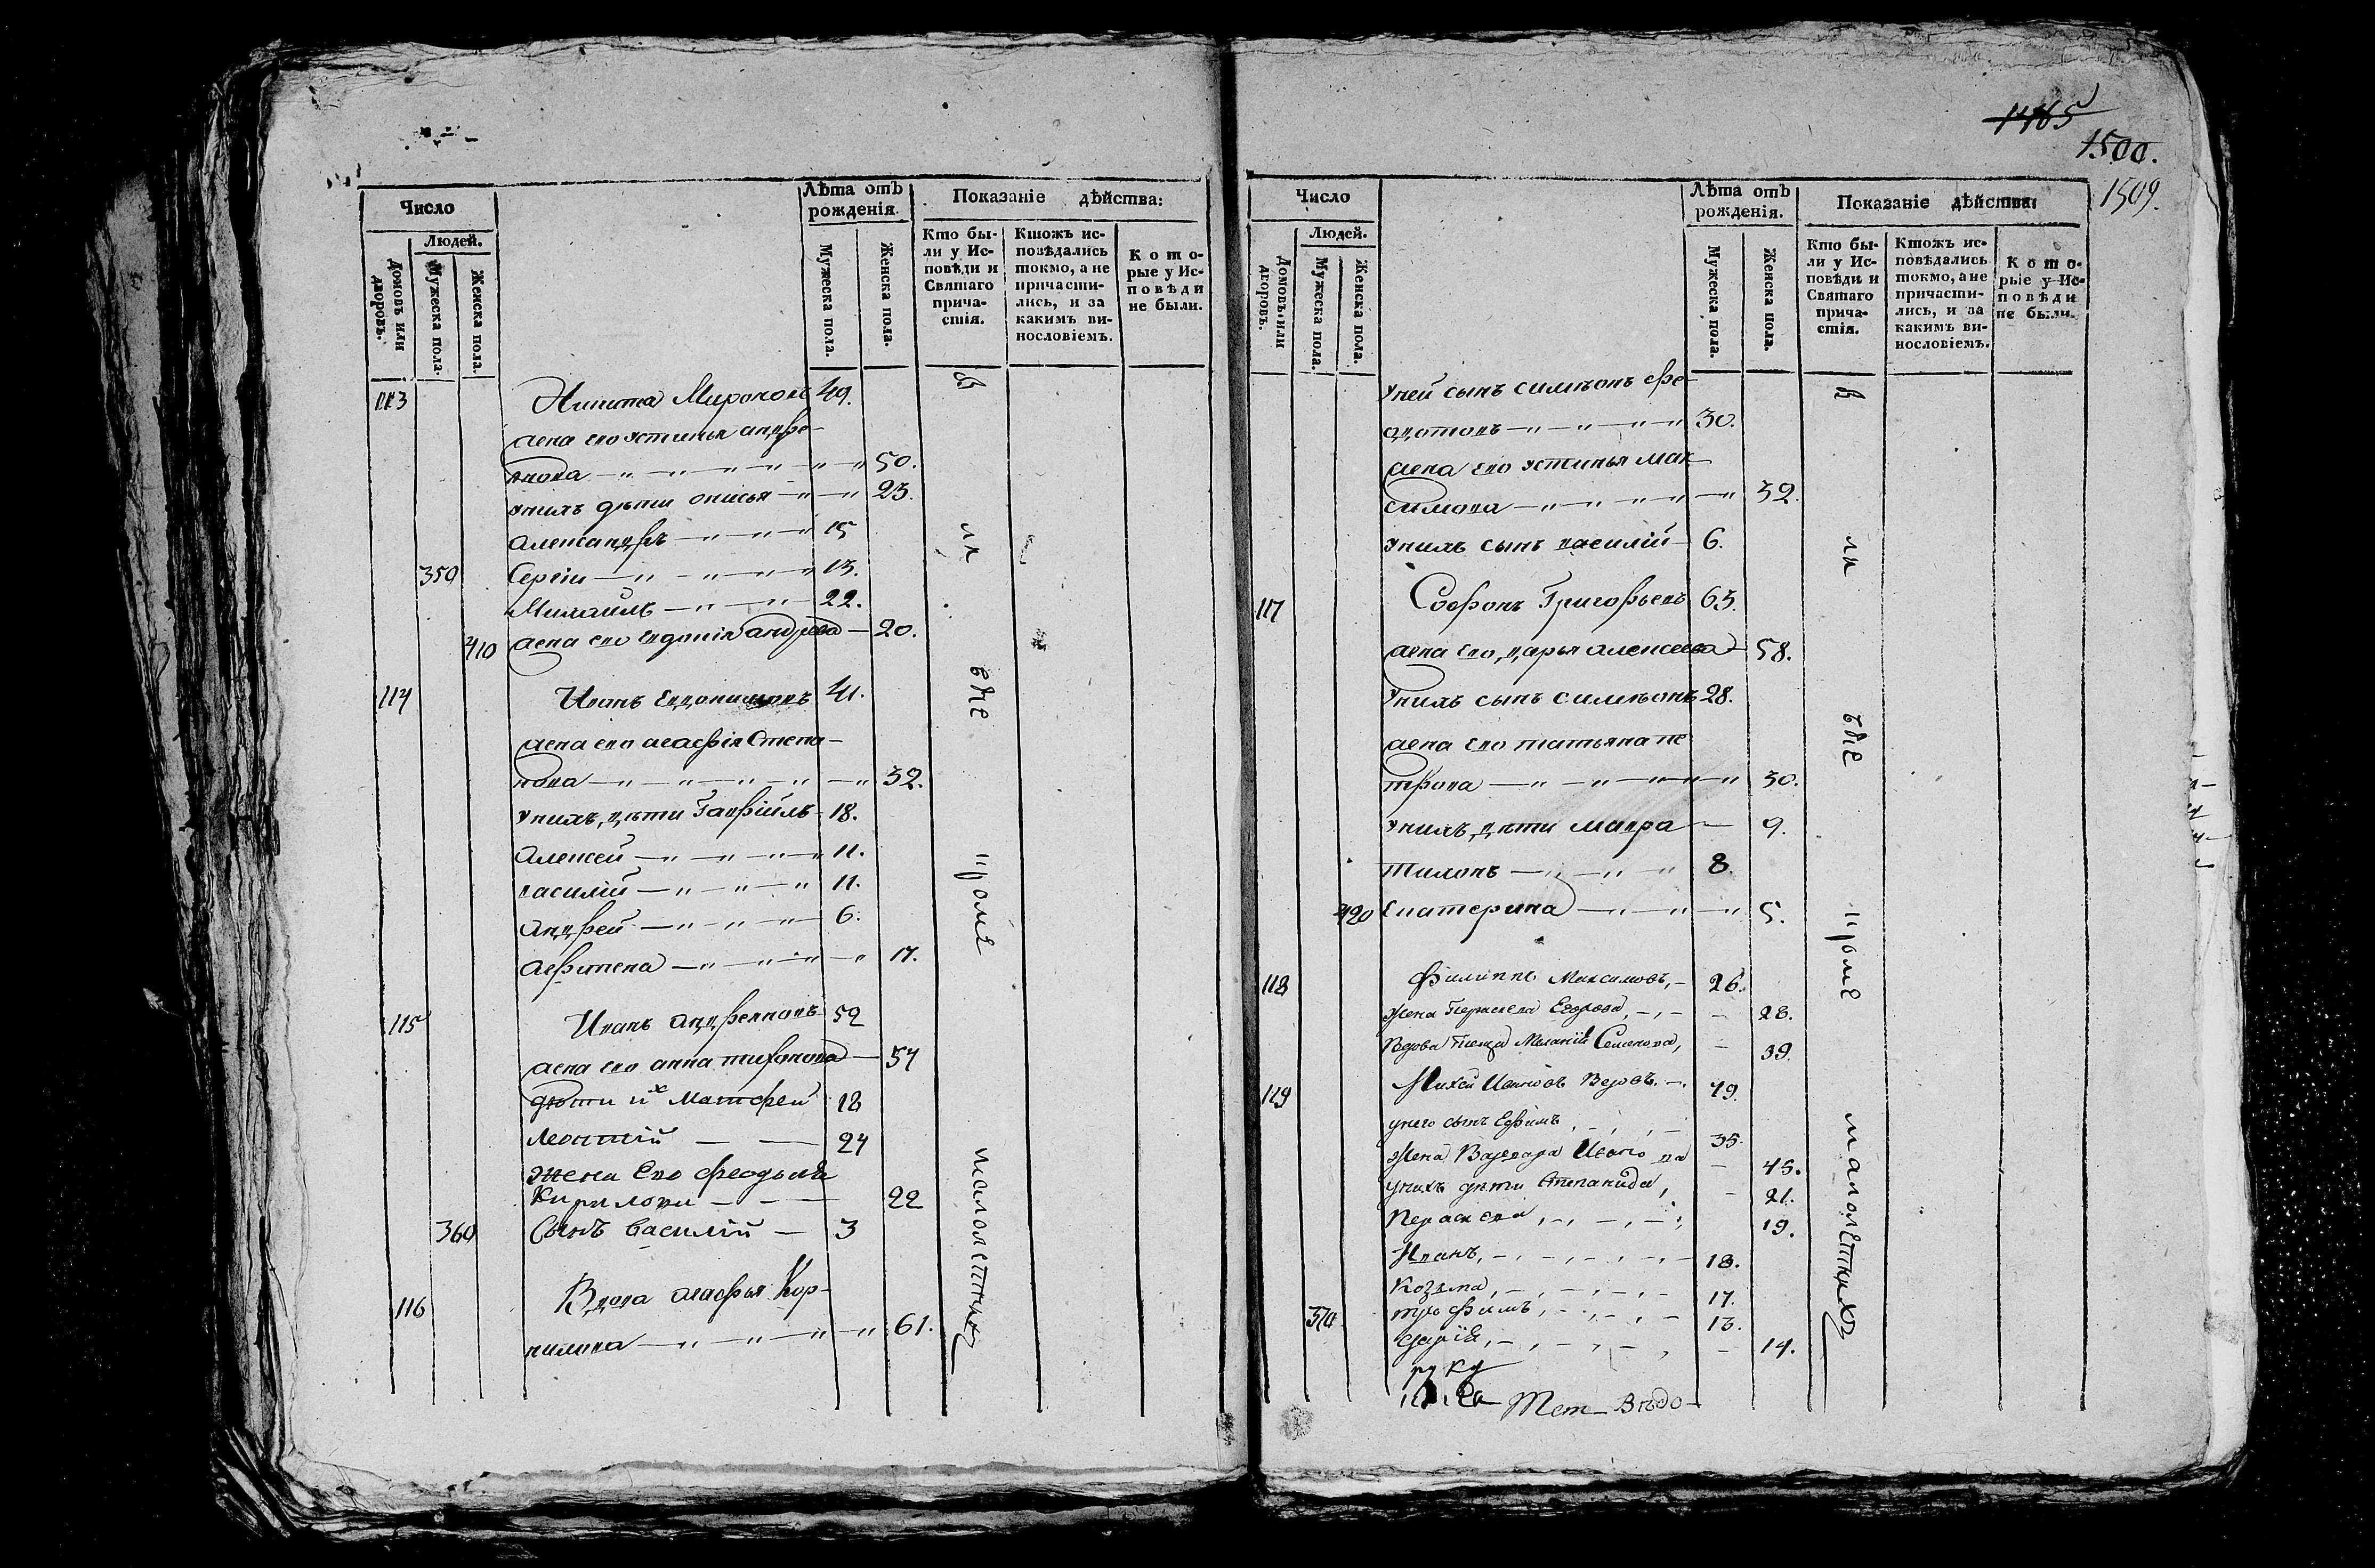 Число
Людей.
Домовъ или дворовъ.
Мужеска пола.
Женска пола.
Лѣта отъ рожденія.
Мужеска пола.
Женска пола.
Показаніе дѣйства:
Кто были у Исповѣди и Святаго причастія.
Ктожъ исповѣдались токмо, а не причастились, и за какимъ винословіемъ.
Которые у Исповѣди не были.
113 Никита Мироновъ 49.
жена его устинья андре-
янова 50.
унихъ дѣти онисья 23.
александръ 15
350 Сергіи 13.
Михаилъ 22.
410 жена его евдокія андреева 20.
114 Иванъ Евдокимовъ 41.
жена его агафія Степа-
нова 32.
унихъ дѣти Гаврійлъ 18.
алексей 11.
василій 11.
андрей 6.
аграфена 17.
115 Иванъ андреяновъ 52
жена его анна тихонова 54
дѣти их Матфей 18
леонтій 24
жена Его
Кирилова 22
360 Сынъ василій 3
116 Вдова агафья Кор-
нилова 61.
всѣ кроме малолетних
1465
1500.
1509.
Число
Людей.
Домовъ или дворовъ.
Мужеска пола.
Женска пола.
Лѣта отъ рожденія.
Мужеска пола.
Женска пола.
Показаніе дѣйства:
Кто были у Исповѣди и Святаго причастія.
Ктожъ исповѣдались токмо, а не причастились, и за какимъ винословіемъ.
Которые у Исповѣди не были.
уней сынъ симѣонъ фе-
дотовъ 30.
жена его устинья мак-
симова 32.
унихъ сынъ василій 6.
117 Софонъ Григорьевъ 63.
жена его дарья алексеева 58.
Унихъ сынъ симѣонъ 28.
жена его татьяна пе-
трова 30.
унихъ дѣти мавра 9.
тихонъ 8.
420 Екатерина 5.
118 Филиппъ Максимовъ, 26.
жена Параскева Егорова, 28.
Вдова теща Меланія Семенова, 39.
119 Михей Ивановъ Вдовъ. 49.
унего сынъ Ефимъ 35.
жена Варвара Иванова 45.
унихъ дѣти Степанида, 21.
Параскева 19.
Иванъ, 18.
Козьма, 17.
370 трофимъ, 13.
дарія, 14.
руку
Тет Вѣдо
всѣ кроме малолетныхъ